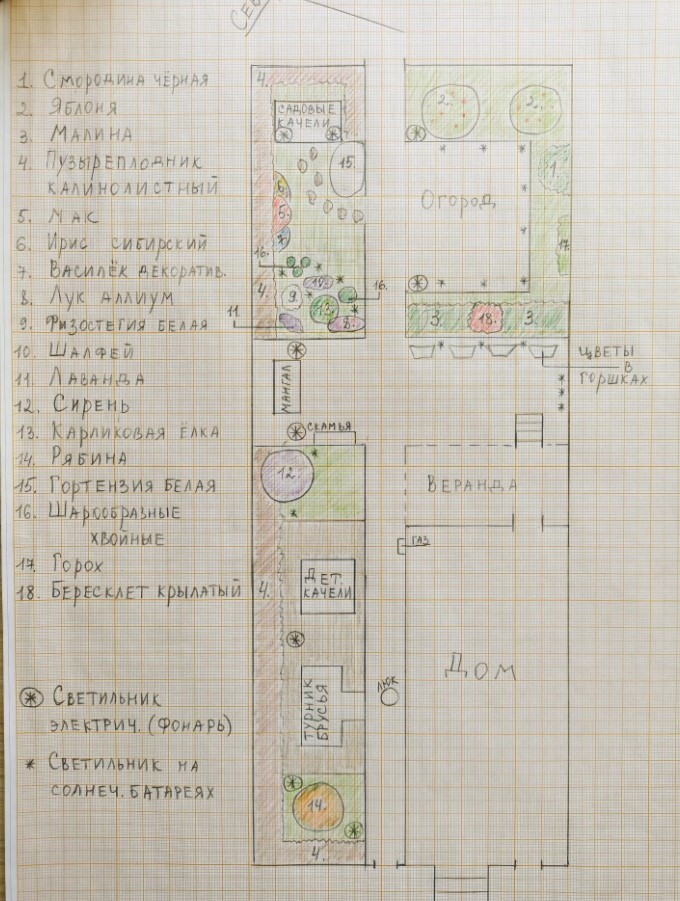 СЕВ
1. Смородина чёрная
2. Яблоня
3. Малина
4. Пузыреплодник
калинолистный
5. Мак
6. Ирис сибирский
7. Василёк декоратив.
8. Лук аллиум
9. Физостегия белая
10. Шалфей
11. Лаванда
12. Сирень
13. Карликовая ёлка
14. Рябина
15. Гортензия белая
16. Шарообразные
хвойные
17. Горох
18. Бересклет крылатый
Светильник
электрич. (фонарь)
* Светильник на
солнеч. батареях
4.
Садовые
качели
15.
6.
5.
7
16.
10.
16.
4.
9.
13.
8.
11
Мангал
Скамья
12.
4.
Дет.
качели
Турник
брусья
Люк
14.
4.
2.
2.
1.
Огород
17.
3.
18.
3.
Цветы
в
горшках
Веранда
газ
Дом